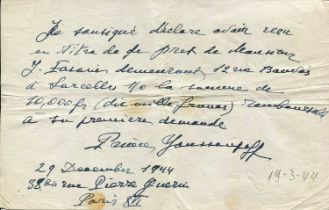 Je soussigné déclare avoir reçu
en titre de pret de Monsieur
J. demeurant 12 rue
à Sarcelles s/o la somme de
10,000 frs (dix mille francs) remboursable
à sa première demande
Prince Youssoupoff
29 Decembre 1944
38 bis rue Pierre Guerin
Paris XVI
19-3-44